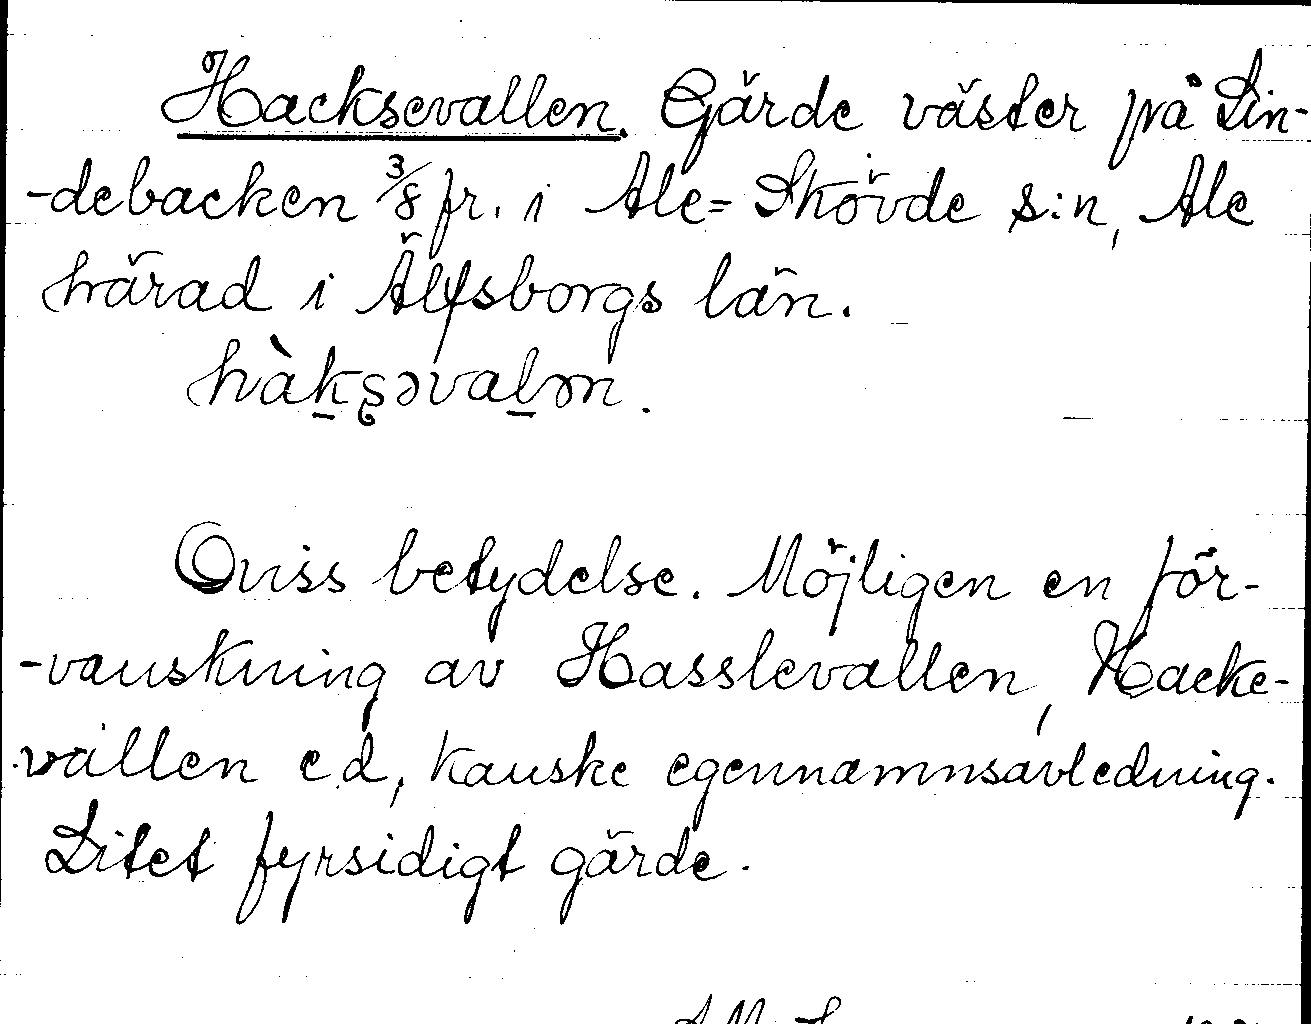 Hacksevallen. Gärde väster på Lin-
-debacken 3/8 fr. i Ale=Skövde s:n, Ale
härad i Älfsborgs län.
hàk̠ʂəval̠ən.
Oviss betydelse. Möjligen en för-
-vanskning av Hasslevallen, Hacke-
vallen e d, kanske egennamnsavledning.
Litet fyrsidigt gärde.